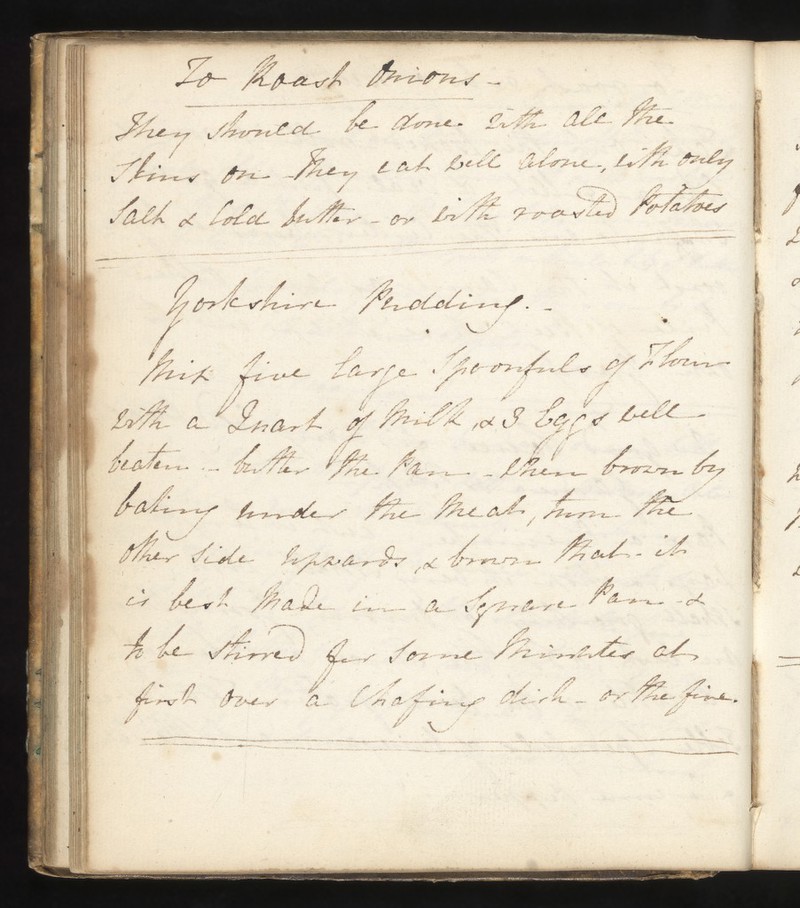 To Roast Onions -
They should be done with all the
Skins on - They eat well alone, with only
Salt & Cold butter - or with roasted Potatoes
Yorkshire Pudding. -
Mix five large Spoonfuls of Flour
with a Quart of Milk, & 3 Eggs well
beaten - butter the Pan - when brown by
baking under the Meat, turn the
other side upwards, & brown that - it
is best Made in a Square Pan - &
to be stirred for Some Minutes at
first over a Chafing dish - or the fire.